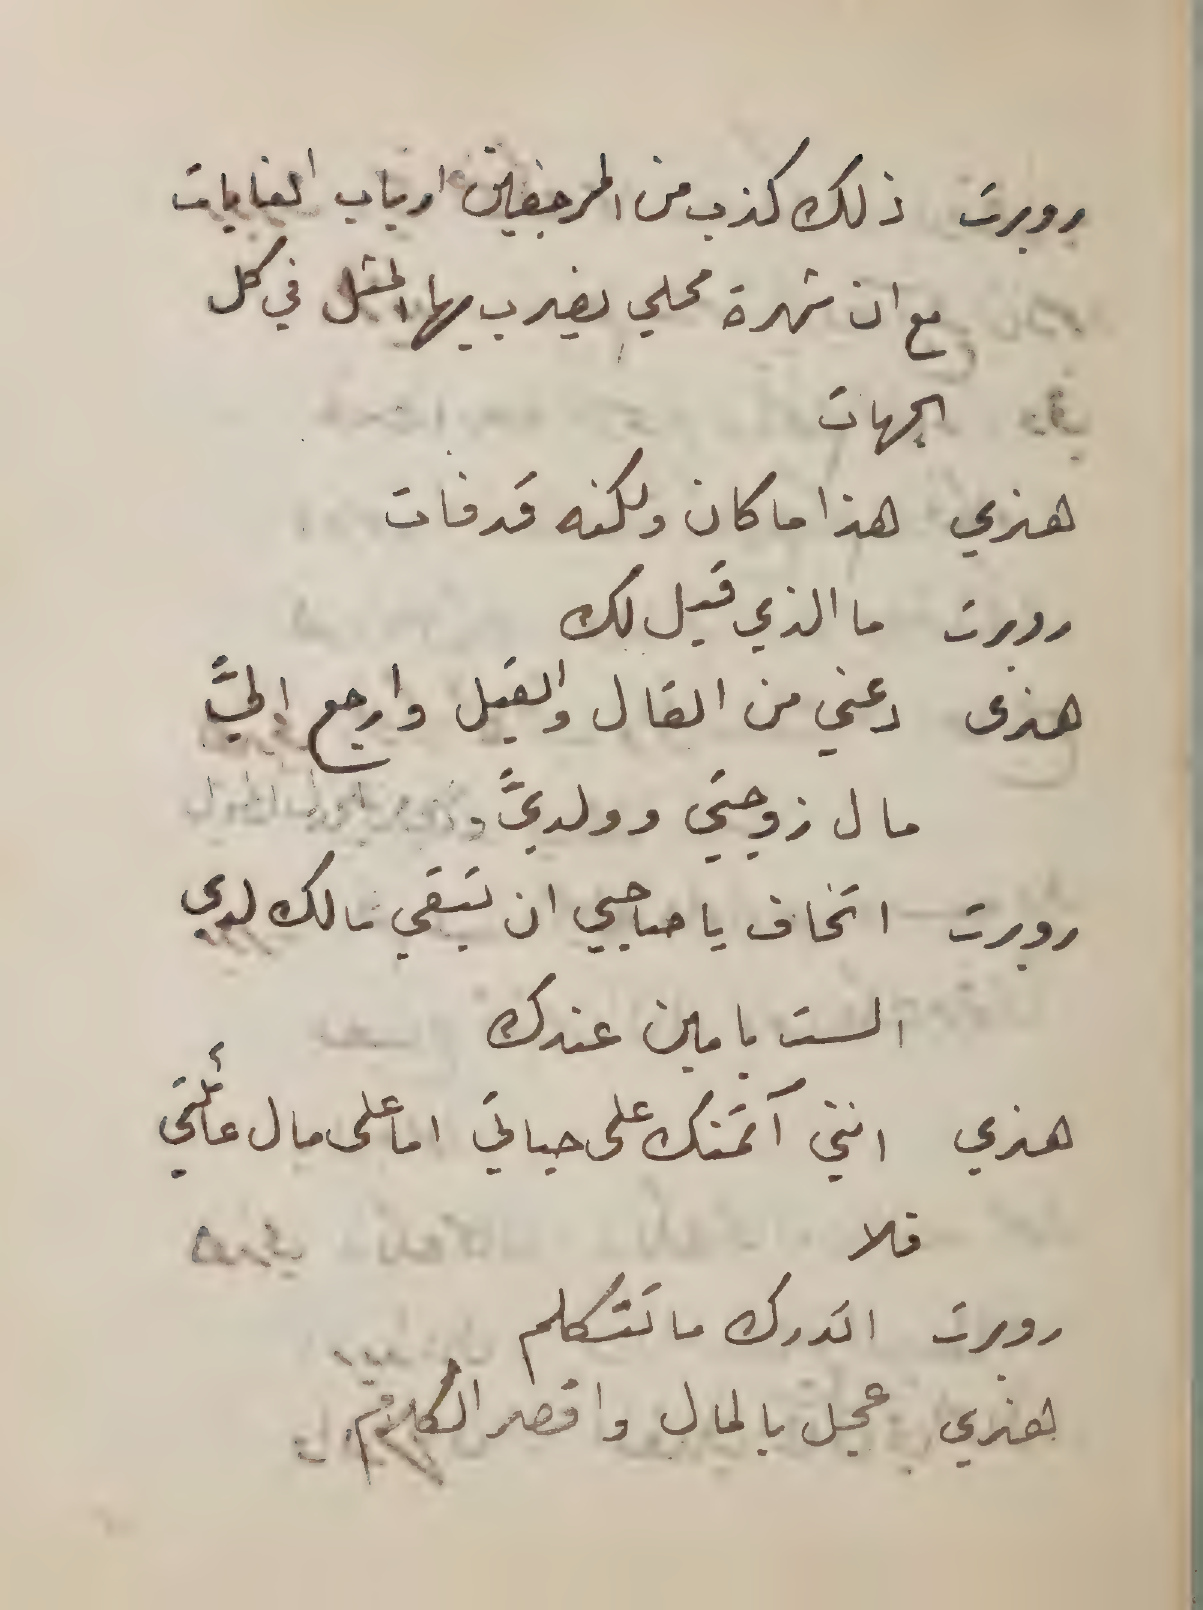 روبرت ذلك كذب من المرجفين ارباب الغايات
مع ان شهرة محلي يضرب بها المثل في كل
الجهات
هنري هذا ما كان ولكنه قد فات
روبرت ما الذي قيل لك
هنرى دعني من القال والقيل وارجع اليَّ
مال زوجتي وولديَّ
روبرت اتخاف يا صاحبي ان تبقي مالك لدي
الست بامين عندك
هنري انني آتمنك على حياتي اما على مال عائلتي
فلا
روبرت اتدرك ما تتكلم
هنري عجل بالمال واقصر الكلام